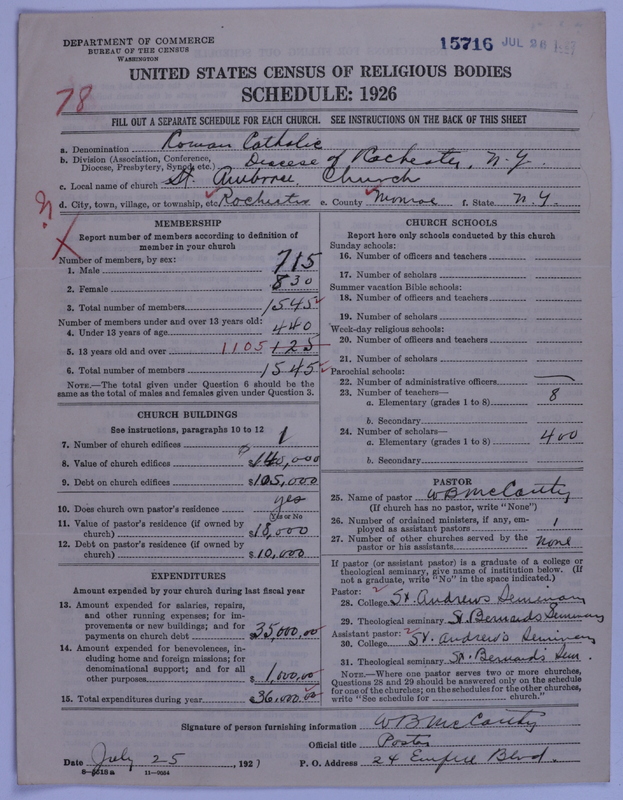 DEPARTMENT OF COMMERCE
BUREAU OF THE CENSUS
WASHINGTON
15716 JUL 26
UNITED STATES CENSUS OF RELIGIOUS BODIES
SCHEDULE: 1926
78
FILL OUT A SEPARATE SCHEDULE FOR EACH CHURCH. SEE INSTRUCTIONS ON THE BACK OF THIS SHEET
a. Denomination Roman Catholic
b. Division (Association, Conference, Diocese, Presbytery, Synod, etc.) Diocese of Rochester, N.Y.
c. Local name of church St. Ambrose Church
d. City, town, village, or township, etc. Rochester e. County Monroe f. State N.Y.
MEMBERSHIP
Report number of members according to definition of
member in your church
Number of members, by sex:
1. Male 715
2. Female 830
3. Total number of members 1545
Number of members under and over 13 years old:
4. Under 13 years of age 440
5. 13 years old and over 1105 125
6. Total number of members 1545
NOTE.—The total given under Question 6 should be the
same as the total of males and females given under Question 3.
CHURCH BUILDINGS
See instructions, paragraphs 10 to 12
7. Number of church edifices 1
8. Value of church edifices $140,000
9. Debt on church edifices $105,000
10. Does church own pastor's residence yes
Yes or No
11. Value of pastor's residence (if owned by
church) $18,000
12. Debt on pastor's residence (if owned by
church) $10,000
EXPENDITURES
Amount expended by your church during last fiscal year
13. Amount expended for salaries, repairs,
and other running expenses; for im-
provements or new buildings; and for
payments on church debt $35,000.00
14. Amount expended for benevolences, in-
cluding home and foreign missions; for
denominational support; and for all
other purposes $1,000.00
15. Total expenditures during year $36,000.00
CHURCH SCHOOLS
Report here only schools conducted by this church
Sunday schools:
16. Number of officers and teachers
17. Number of scholars
Summer vacation Bible schools:
18. Number of officers and teachers
19. Number of scholars
Week-day religious schools:
20. Number of officers and teachers
21. Number of scholars
Parochial schools:
22. Number of administrative officers —
23. Number of teachers—
a. Elementary (grades 1 to 8) 8
b. Secondary
24. Number of scholars—
a. Elementary (grades 1 to 8) 400
b. Secondary
PASTOR
25. Name of pastor W B McCarthy
(If church has no pastor, write "None")
26. Number of ordained ministers, if any, em-
ployed as assistant pastors 1
27. Number of other churches served by the
pastor or his assistants none
If pastor (or assistant pastor) is a graduate of a college or
theological seminary, give name of institution below. (If
not a graduate, write "No" in the space indicated.)
Pastor:
28. College St. Andrews Seminary
29. Theological seminary St. Bernards Seminary
Assistant pastor:
30. College St. Andrew's Seminary
31. Theological seminary St. Bernards Sem.
NOTE.—Where one pastor serves two or more churches,
Questions 28 and 29 should be answered only on the schedule
for one of the churches; on the schedules for the other churches,
write "See schedule for church."
Signature of person furnishing information W B McCarthy
Official title Pastor
Date July 25, 1927 P. O. Address 24 Empire Blvd.
8-5618a 11-9054